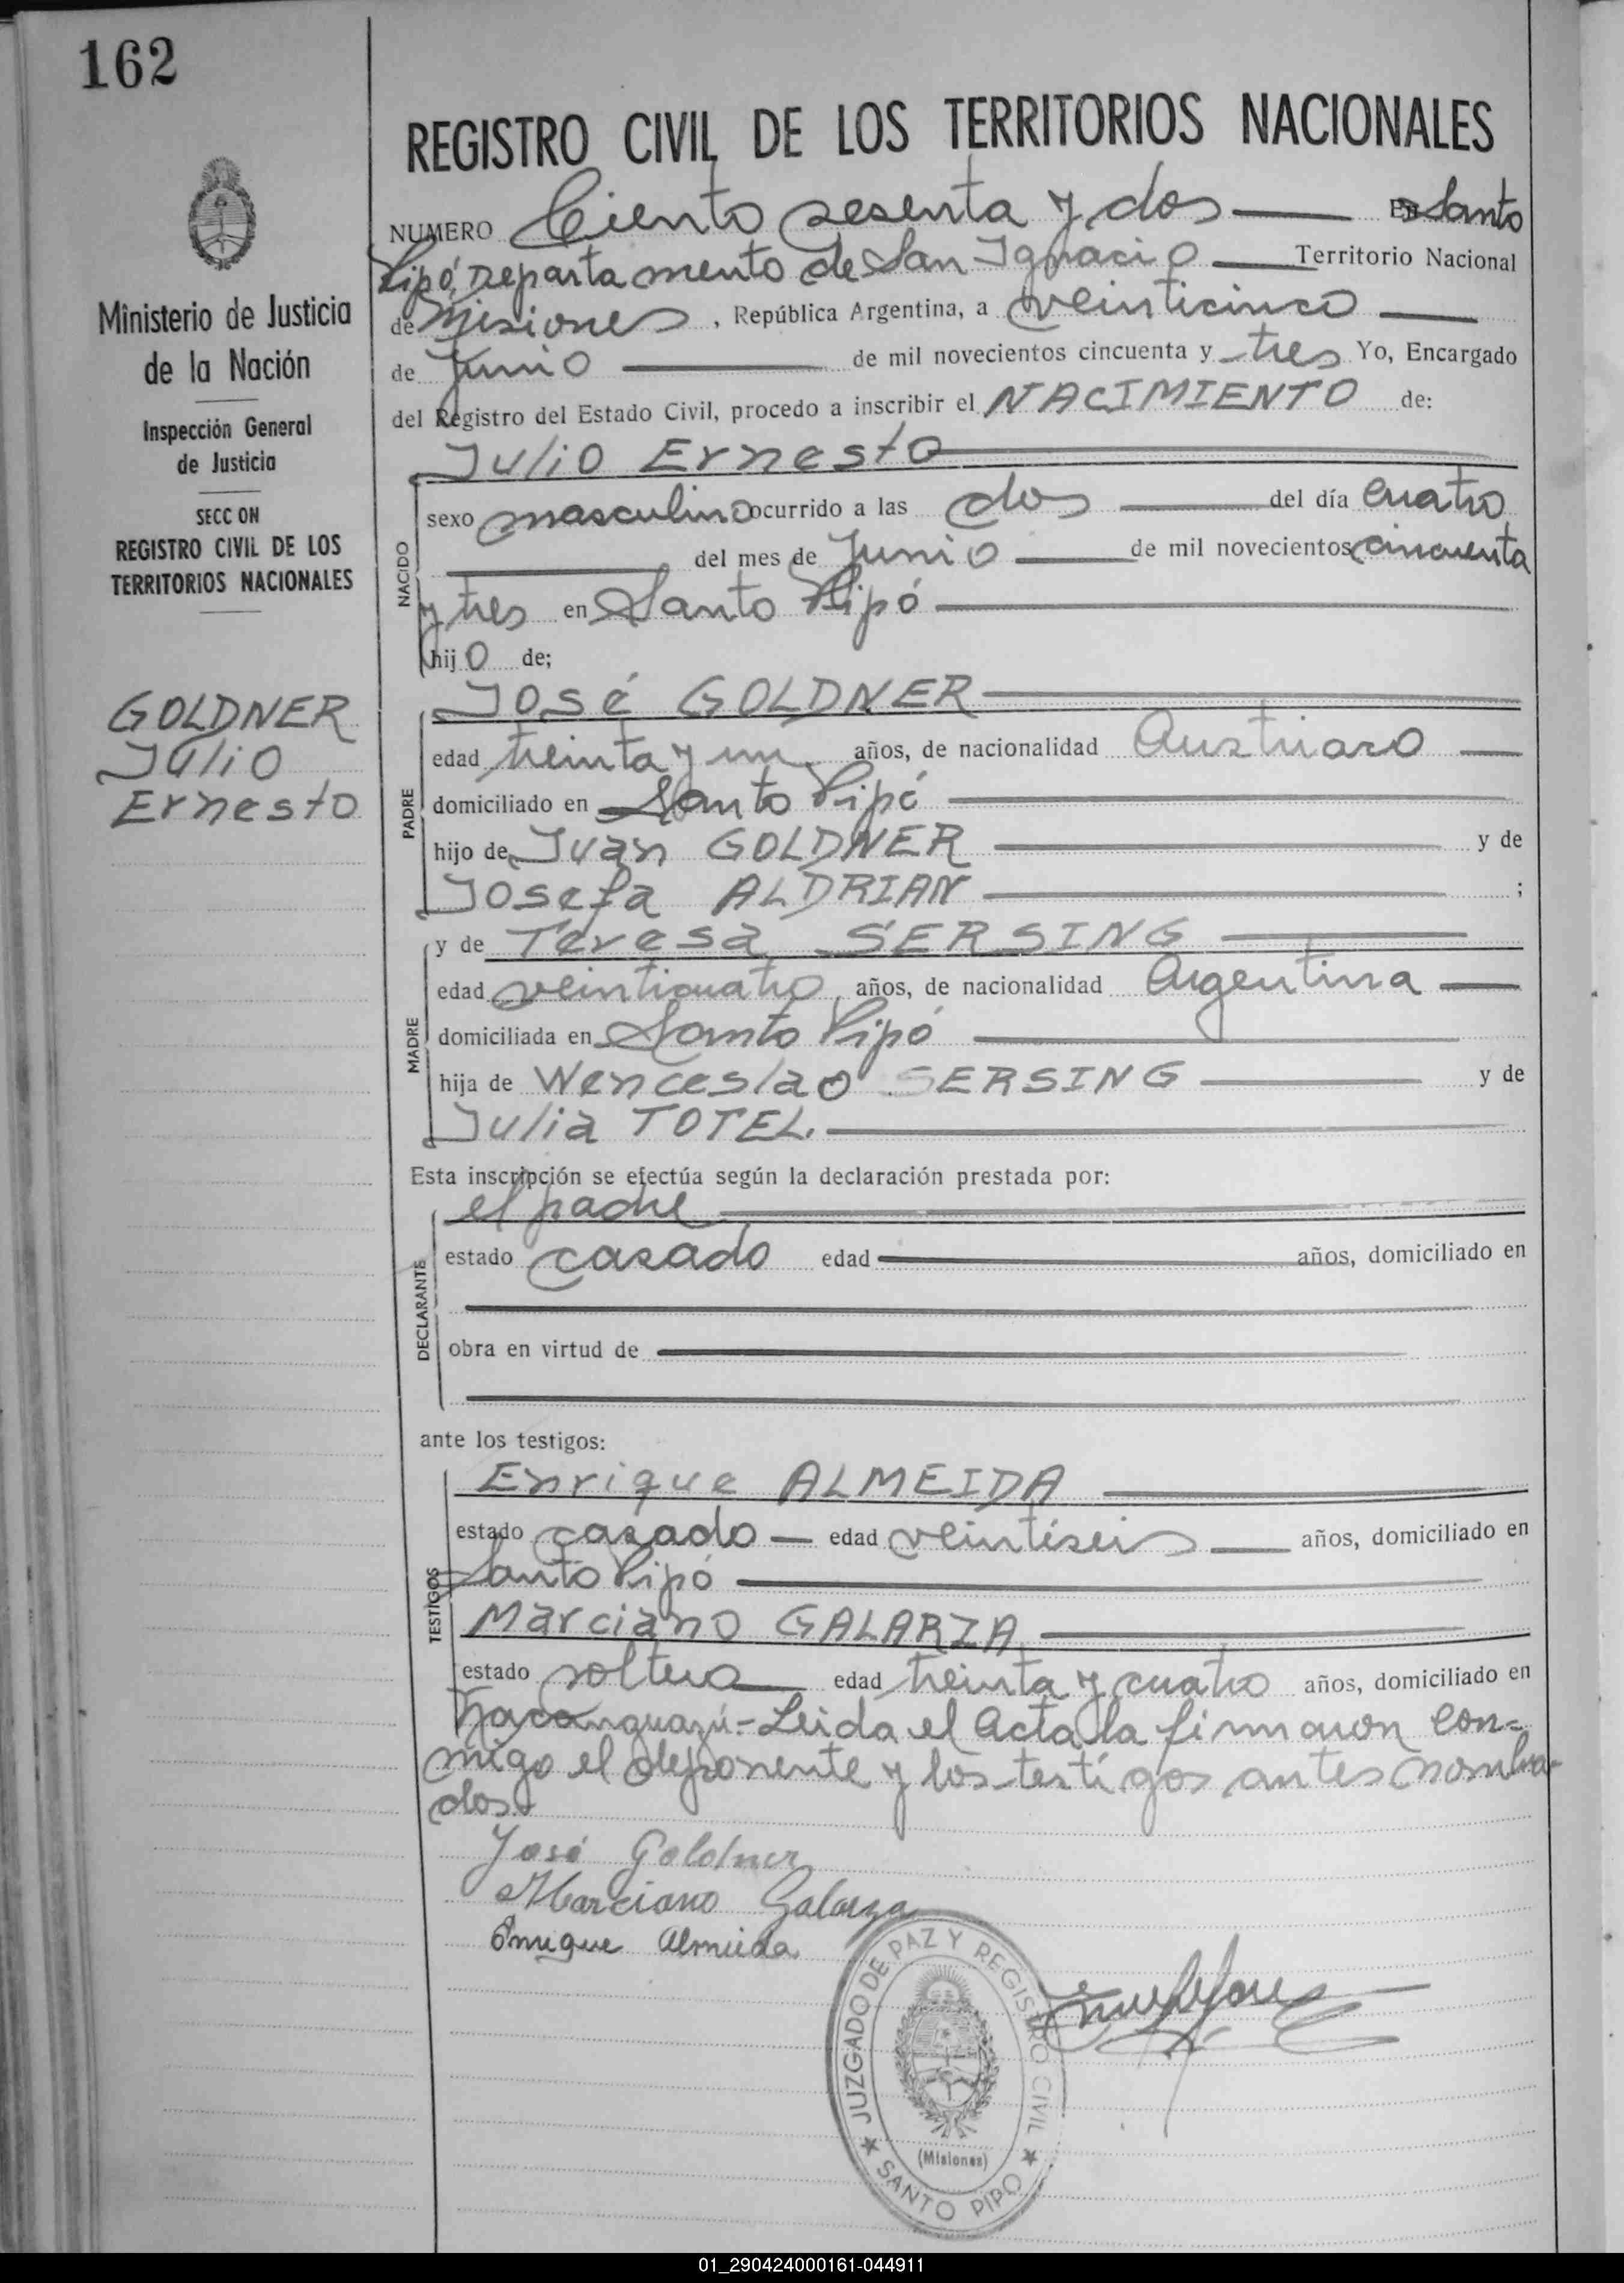 162
Ministerio de Justicia
de la Nación
Inspección General
de Justicia
SECC ON
REGISTRO CIVIL DE LOS
TERRITORIOS NACIONALES
GOLDNER
Julio
Ernesto
REGISTRO CIVIL DE LOS TERRITORIOS NACIONALES
NUMERO Ciento sesenta y dos En Santo
Pipó, Departamento de San Ignacio Territorio Nacional
de Misiones, República Argentina, a veinticinco
de Junio de mil novecientos cincuenta y tres Yo, Encargado
del Registro del Estado Civil, procedo a inscribir el NACIMIENTO de:
Julio Ernesto
NACIDO
sexo masculino ocurrido a las dos del día cuatro
del mes de Junio de mil novecientos cincuenta
y tres en Santo Pipó
hijo de;
José GOLDNER
PADRE
edad treinta y un años, de nacionalidad Austriaco
domiciliado en Santo Pipó
hijo de Juan GOLDNER y de
Josefa ALDRIAN ;
y de Teresa SERSING
MADRE
edad veinticuatro años, de nacionalidad Argentina
domiciliada en Santo Pipó
hija de Wenceslao SERSING y de
Julia TOTEL.
Esta inscripción se efectúa según la declaración prestada por:
el padre
DECLARANTE
estado casado edad años, domiciliado en
obra en virtud de
ante los testigos:
Enrique ALMEIDA
TESTIGOS
estado casado edad veintiseis años, domiciliado en
Santo Pipó
Marciano GALARZA
estado soltero edad treinta y cuatro años, domiciliado en
Leida el Acta la firmaron con=
migo el deponente y los testigos antes nombra-
dos.
José Goldner
Marciano Galarza
Enrique Almeida
JUZGADO DE PAZ Y REGISTRO CIVIL
(Misiones)
★ SANTO PIPO ★
01_290424000161-044911